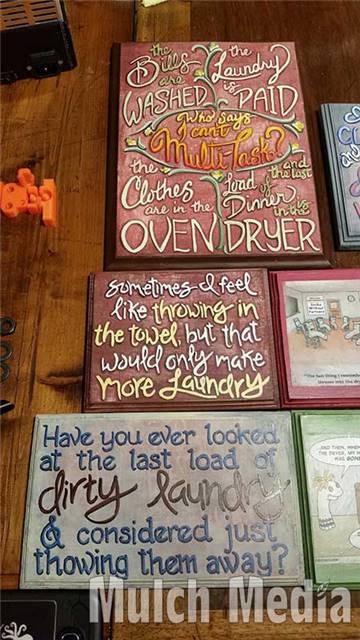 the the
Bills Laundry
are is
WASHED PAID
Who says
I can't
Multi Task?
the and
Clothes the last
are in the Load of
Dinner is
in the
OVEN DRYER
Sometimes I feel
like throwing in
the towel, but that
would only make
more Laundry
Have you ever looked
at the last load of
dirty laundry
& considered just
thowing them away?
AND THEN, WHEN
THE DRYER, MY
WAS GONE
Mulch Media